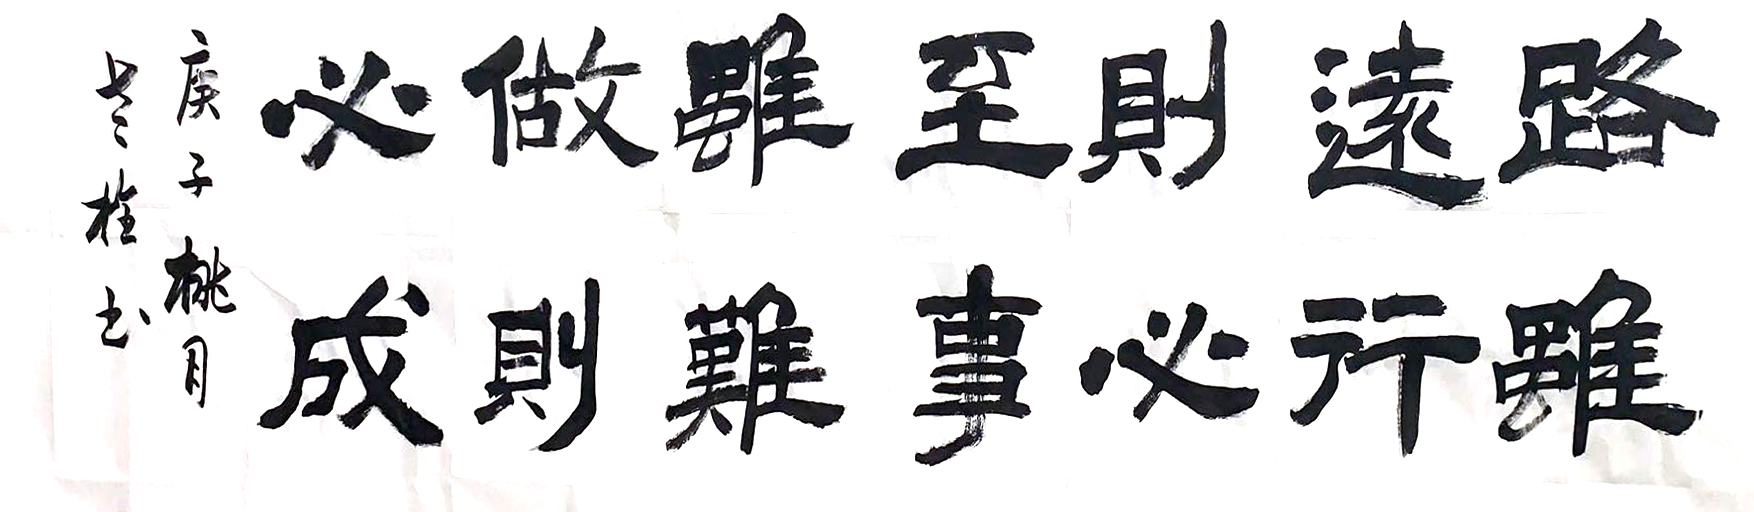 路雖
遠行
則必
至事
雖難
做則
必成
庚子桃月
栓书